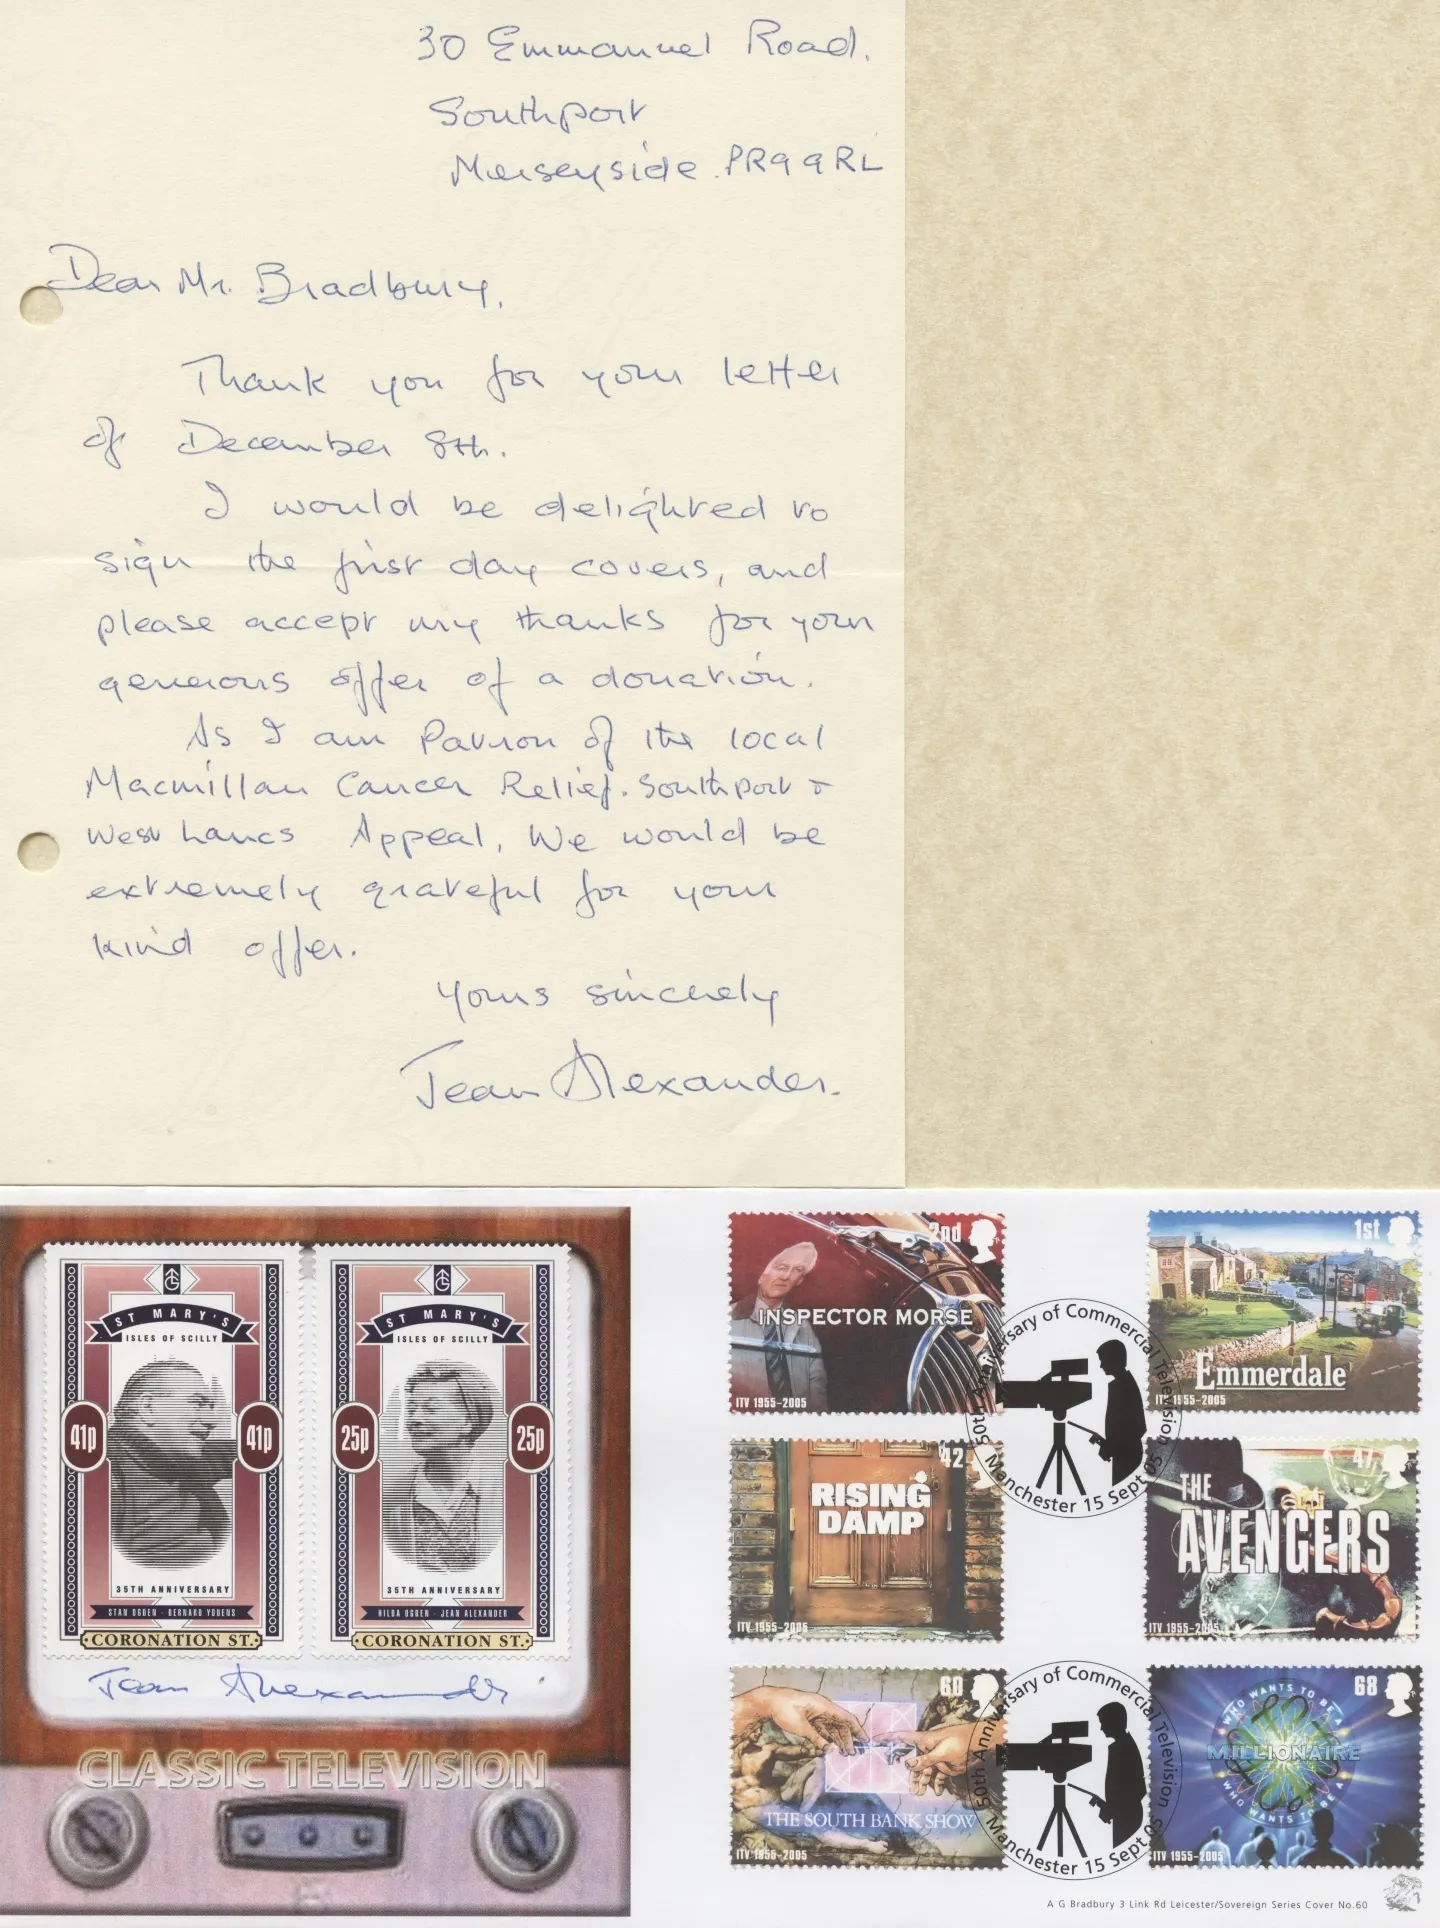 30 Emmanuel Road.
Southport
Merseyside. PR9 9RL
Dear Mr. Bradbury,
Thank you for your letter
of December 8th.
I would be delighted to
sign the first day covers, and
please accept my thanks for your
generous offer of a donation.
As I am Patron of the local
Macmillan Cancer Relief. Southport &
West Lancs Appeal, We would be
extremely grateful for your
kind offer.
Yours sincerely
Jean Alexander.
ST MARY'S
ISLES OF SCILLY
41p 41p
35TH ANNIVERSARY
STAN OGDEN - BERNARD YOUENS
CORONATION ST.
ST MARY'S
ISLES OF SCILLY
25p 25p
35TH ANNIVERSARY
HILDA OGDEN - JEAN ALEXANDER
CORONATION ST.
Jean Alexander
CLASSIC TELEVISION
2nd
INSPECTOR MORSE
ITV 1955-2005
1st
Emmerdale
ITV 1955-2005
50th Anniversary of Commercial Television
Manchester 15 Sept 05
42
RISING
DAMP
ITV 1955-2005
47
THE
AVENGERS
ITV 1955-2005
60
THE SOUTH BANK SHOW
ITV 1955-2005
50th Anniversary of Commercial Television
Manchester 15 Sept 05
68
WHO WANTS TO BE A
MILLIONAIRE
WHO WANTS TO BE A
ITV 1955-2005
A G Bradbury 3 Link Rd Leicester/Sovereign Series Cover No.60